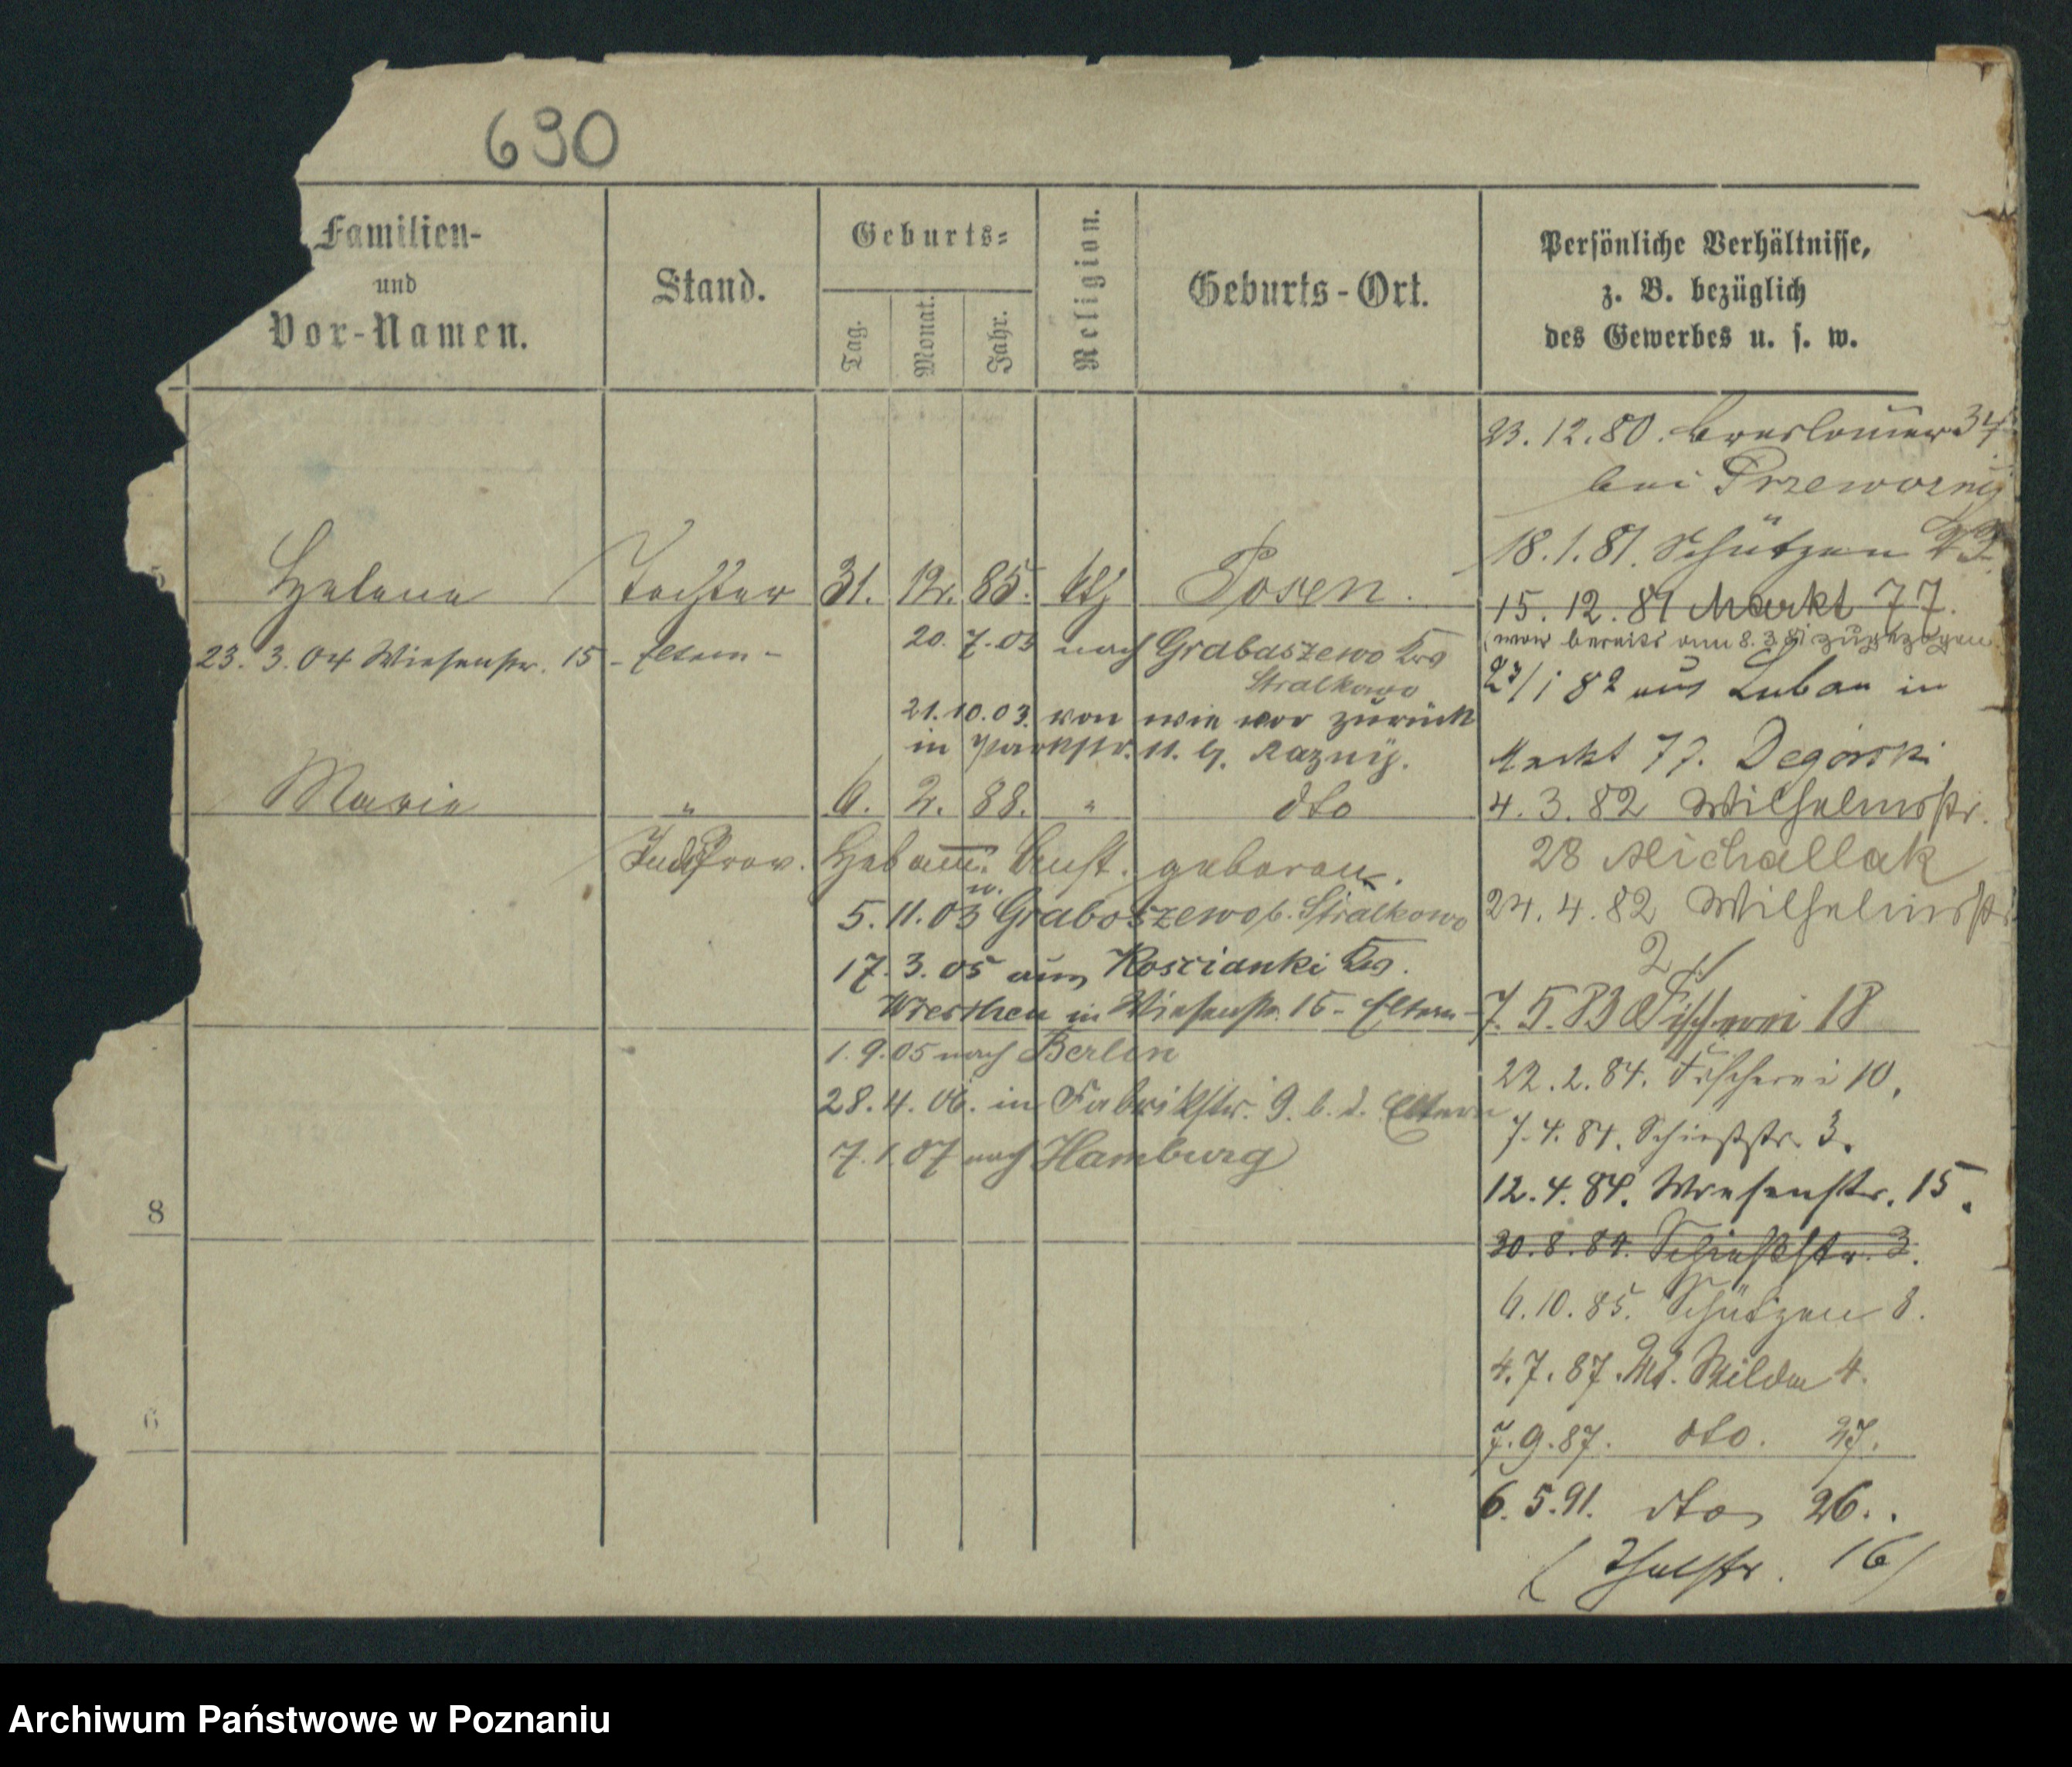 690
Familien-
und
Vor-Namen.
Stand.
Geburts-
Tag.
Monat.
Jahr.
Religion.
Geburts-Ort.
Persönliche Verhältnisse,
z. B. bezüglich
des Gewerbes u. s. w.
Helene Tochter 31. 12. 85. ktj Posen.
23. 3. 04 Wiesenstr. 15 - Eltern -
20. 7. 03 nach Grabaszewo Krs
Stralkowo
21. 10. 03. von wie vor zurück
in Parkstr. 11. b. Razny.
Marie " 6. 2. 88. " dto
Hebam. geboren.
5. 11. 03 n. Graboszewo b. Stralkowo
17. 3. 05 aus Koscianki Krs.
Wreschen in Wiesenstr. 15 - Eltern -
1. 9. 05 nach Berlin
28. 4. 06. in Fabrikstr. 9. b. d. Eltern
7. 1. 07 nach Hamburg
8
6
23. 12. 80. Breslauer 34
bei Przewozny
18. 1. 81. Schützen 23.
15. 12. 81 Markt 77.
(war bereits am 8. 3. 81 zugezogen
23/1 82 aus Luban in
Markt 77. Degorski
4. 3. 82 Wilhelmstr.
28 Michallak
24. 4. 82 Wilhelmstr
2
7. 5. 83 Fischerei 18
22. 2. 84. Fischerei 10.
7. 4. 84. Schießstr. 3.
12. 4. 84. Wiesenstr. 15.
30. 8. 84. Schießstr. 3.
6. 10. 85. Schützen 8.
4. 7. 87. Wilda 4.
7. 9. 87. dto. 27.
6. 5. 91. dto 26..
(Thalstr. 16)
Archiwum Państwowe w Poznaniu